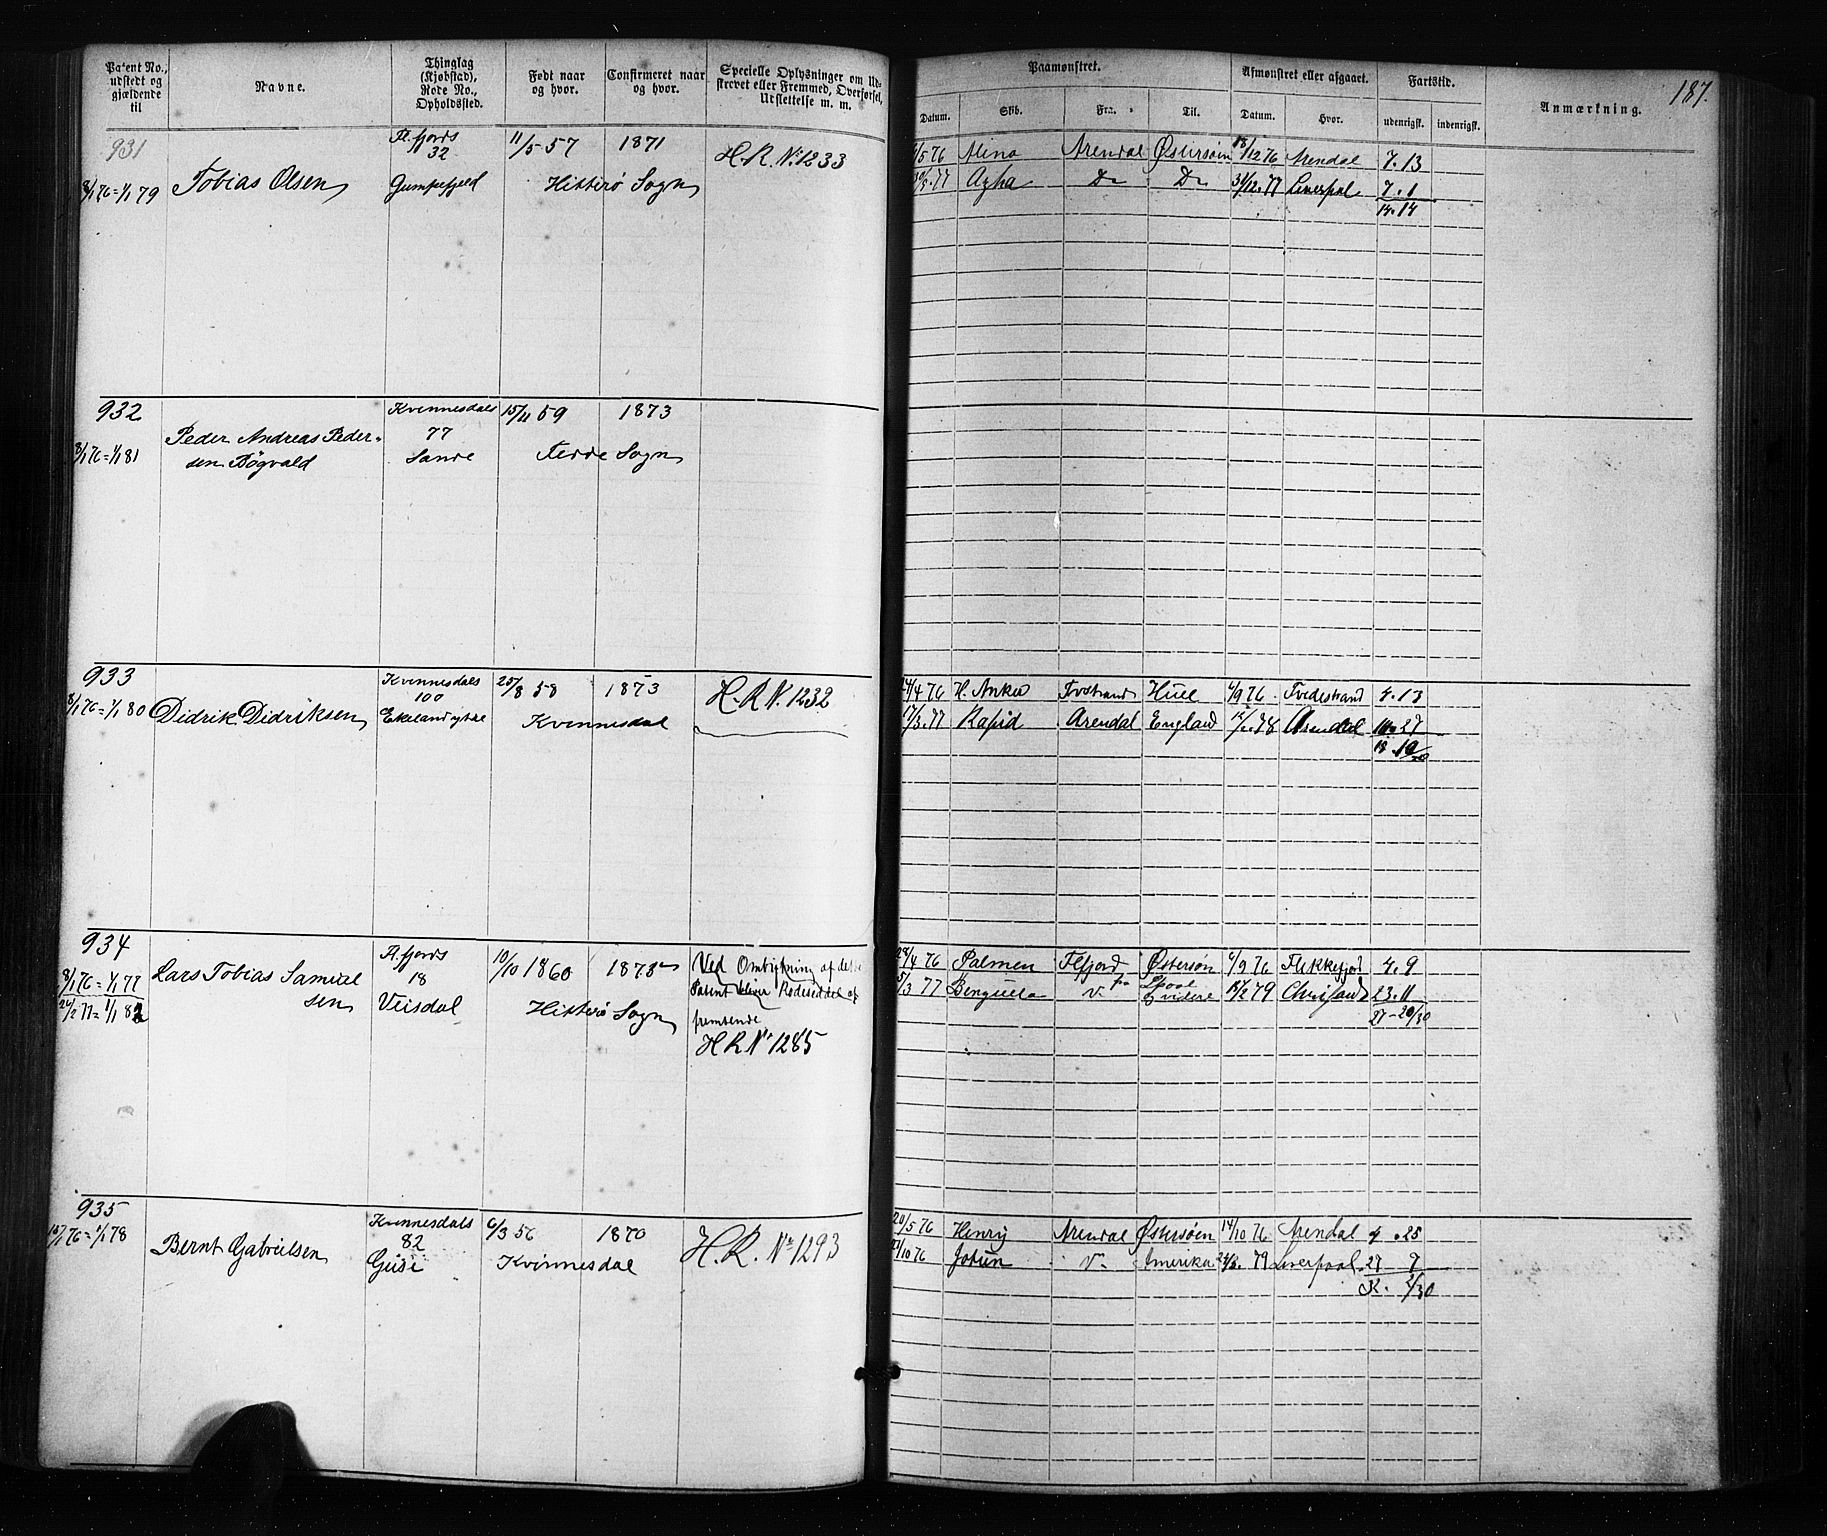 187.
Patent No., udstedt og gjældende til
Navne.
Thinglag (Kjøbstad), Rode No., Opholdssted.
Født naar og hvor.
Confirmeret naar og hvor.
Specielle Oplysninger om Udskrevet eller Fremmed, Overførsel, Udslettelse m. m.
Paamønstret.
Datum.
Skib.
Fra.
Til.
Afmønstret eller afgaaet.
Datum.
Hvor.
Fartstid.
udenrigsk.
indenrigsk.
Anmærkning.
931
8/1 76 = 1/1 79
Tobias Olsen
Fl.fjords
32
Gumpefjeld
11/5 57
1871
Hitterø Sogn
H.R. No 1233
/5 76 Alina Arendal Østersøen 18/12 76 Arendal 7.13
/3.77 Do Do 31/12.77 Liverpol 7.1
14.14
932
8/1 76 = 1/1 81
Peder Andreas Peder-
sen Bøgvald
Kvinnesdals
77
Sande
15/11 59
1873
Fedde Sogn
933
8/1 76 = 1/1 80
Didrik Didriksen
Kvinnesdals
100
Ekeland ytre
25/8 58
1873
Kvinnesdal
H.R. N. 1232
24/4 76 H. Anker Fvstrand Hull 4/9 76 Tvedestrand 4.13
17/3.77 Rapid Arendal England 78 Arendal
934
8/1 76 = 1/1 77
24/2 77 = 1/1 82
Lars Tobias Samuel
sen
Fl.fjords
18
Veisdal
10/10 1860
1873
Hitterø Sogn
Ved Ombytning af dette
Patent bliver Rodeseddel at
fremsende
H R No 1285
28/4 76 Palmen Flfjord Østersøn 6/9 76 Flekkefjord 4.9
5/3 77 Benguela 15/2 79 Chrisand 23.11
27-20/30
935
76 = 1/1 78
Bernt Gabrielsen
Kvinnesdals
82
Geise
6/3 56
1870
Kvinnesdal
H. R. No 1293
20/5 76 Henry Arendal Østersøen 14/10 76 Arendal 4.25
/10 76 Jotun Amerika 79 Liverpool 27 7